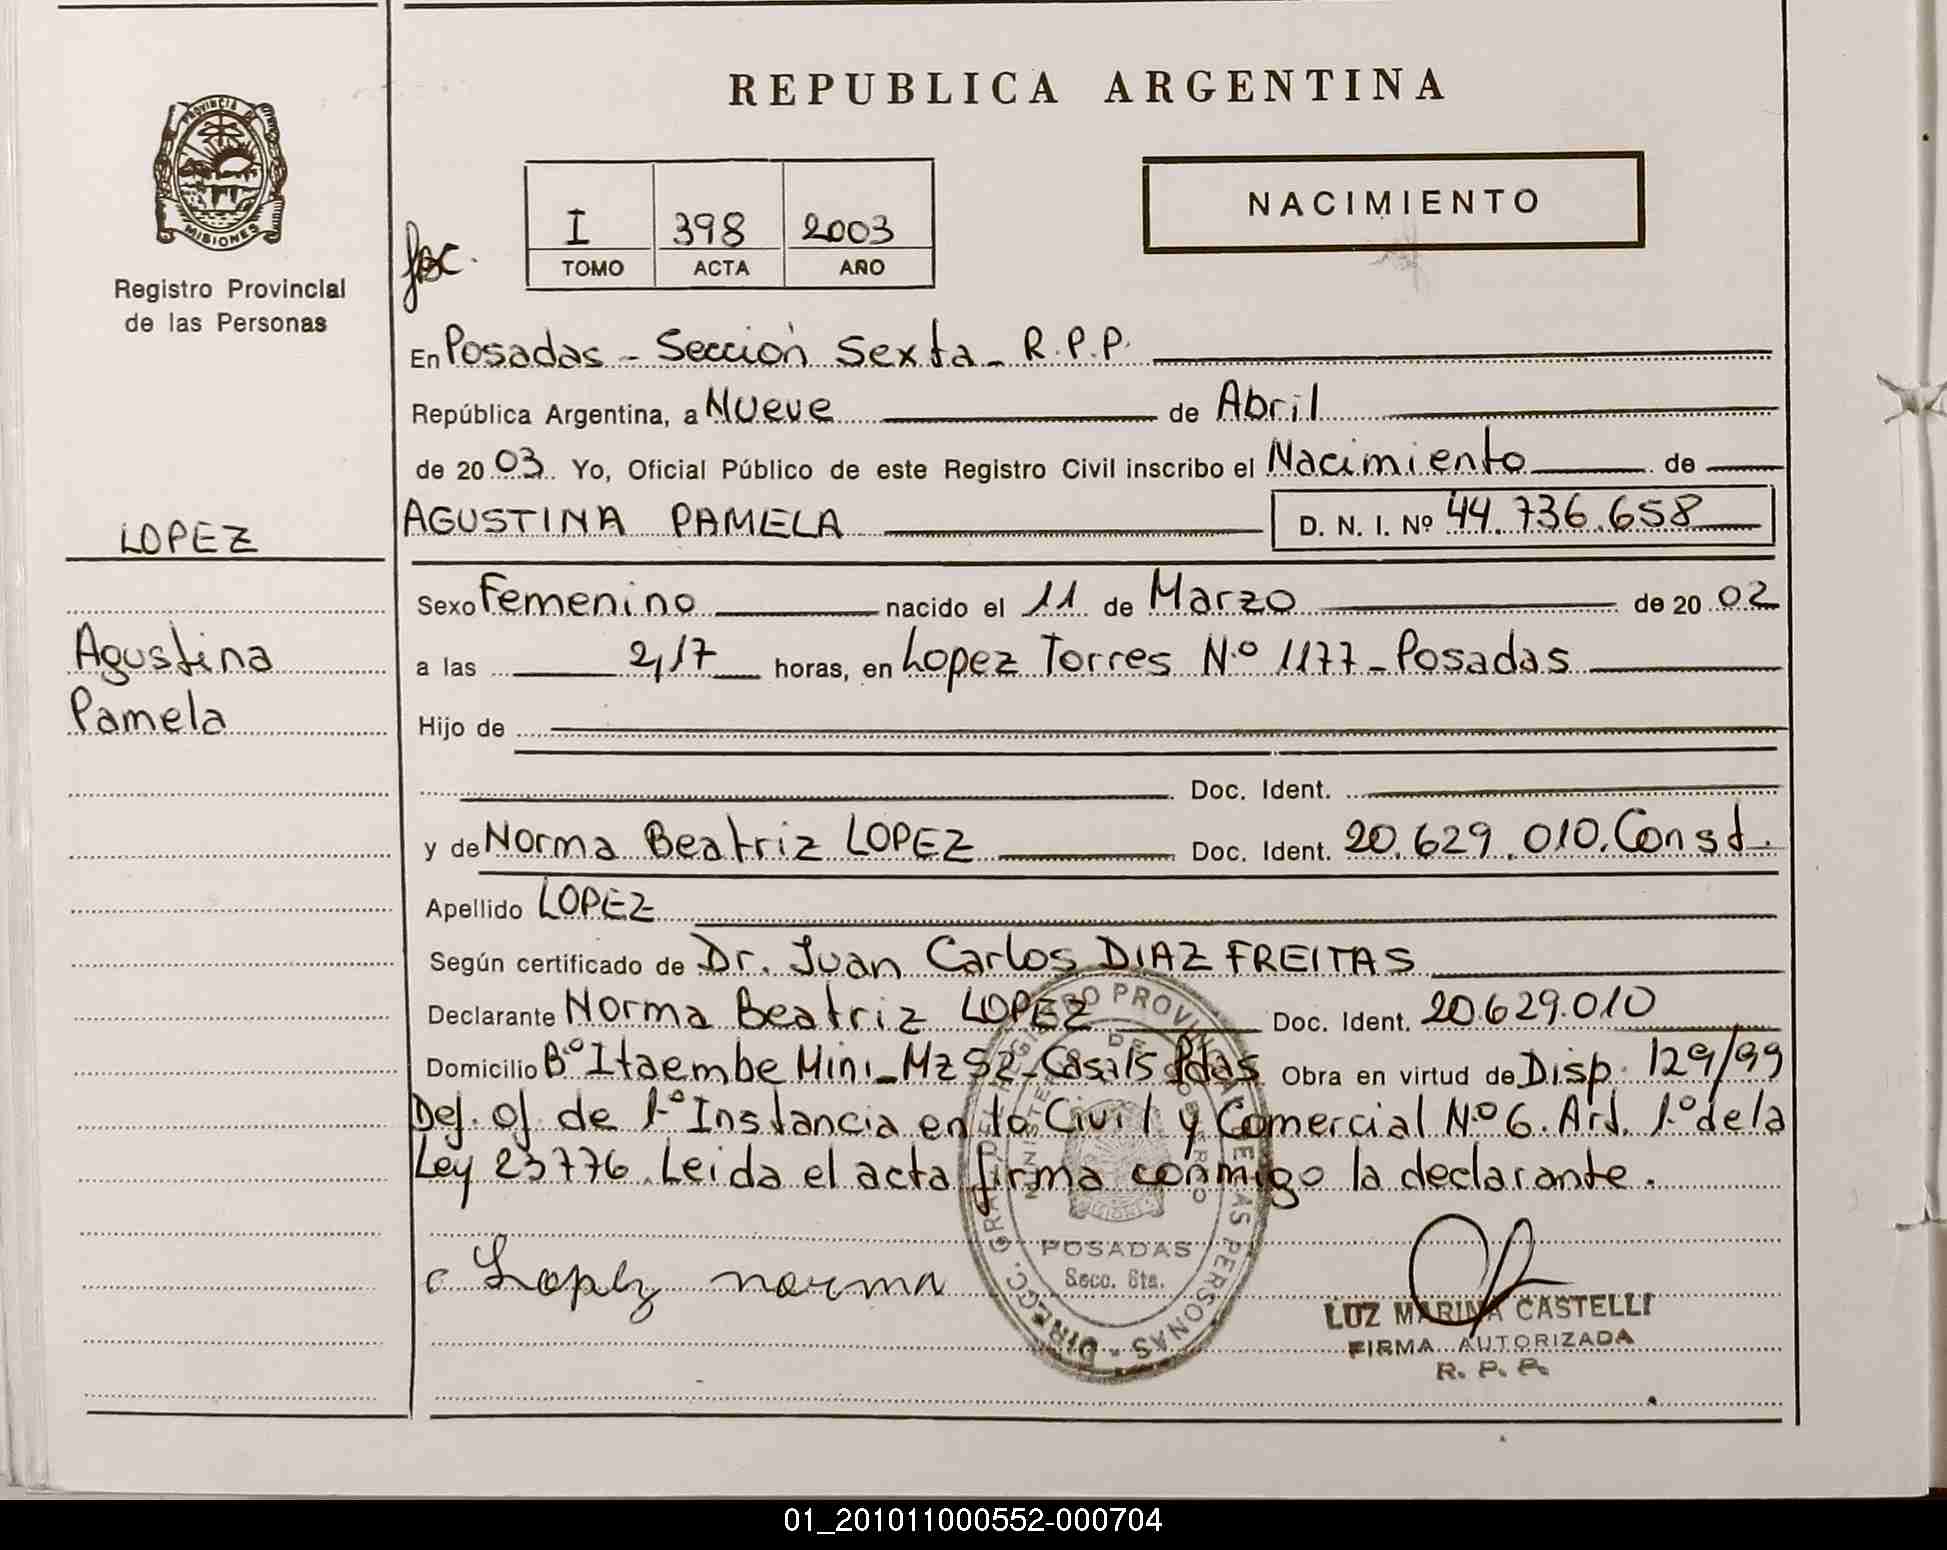 REPUBLICA ARGENTINA
PROVINCIA DE
MISIONES
Registro Provincial
de las Personas
I 398 2003
TOMO ACTA AÑO
NACIMIENTO
En Posadas - Sección Sexta - R.P.P.
República Argentina, a Nueve de Abril
de 2003 Yo, Oficial Público de este Registro Civil inscribo el Nacimiento de
LOPEZ
AGUSTINA PAMELA D. N. I. Nº 44.736.658
Sexo Femenino nacido el 11 de Marzo de 2002
Agustina
Pamela
a las 2,17 horas, en Lopez Torres N.º 1177 - Posadas
Hijo de
Doc. Ident.
y de Norma Beatriz LOPEZ Doc. Ident. 20.629.010. Const.
Apellido LOPEZ
Según certificado de Dr. Juan Carlos DIAZ FREITAS
Declarante Norma Beatriz LOPEZ Doc. Ident. 20.629.010
Domicilio Bº Itaembe Mini - Mz 92 - Casa 15 Pdas Obra en virtud de Disp. 129/99
Def. of. de 1.º Instancia en lo Civil y Comercial N.º 6. Art. 1.º de la
Ley 23776. Leida el acta firma conmigo la declarante.
Lopez norma
POSADAS
Secc. 6ta.
LUZ MARINA CASTELLI
FIRMA AUTORIZADA
R. P. P.
01_201011000552-000704